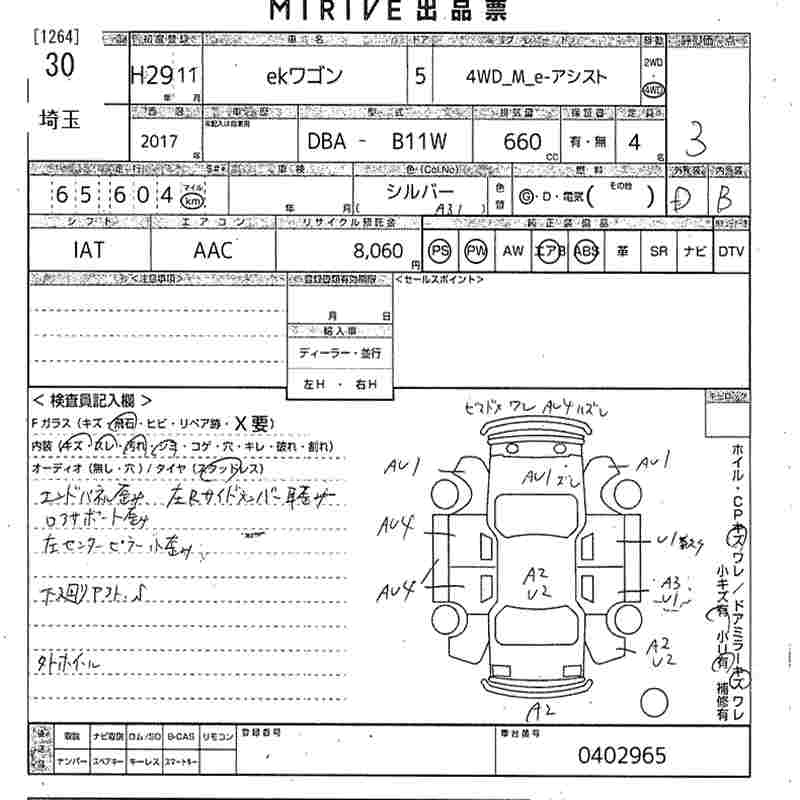 MIRIVE 出品票
[1264]
30
埼玉
初度登録 車名 ドア グレード 駆動 評価点
H29 11 ekワゴン 5 4WD_M_e-アシスト 2WD 4WD
年 月
車歴 型式 排気量 定員
2017 DBA - B11W 660 有・無 4 3
年 cc 名
走行 車検 色(Col.No) 燃料 外装 内装
65,604 マイル km 年 月 シルバー (A31) 色替 G・D・電気( その他 ) D B
シフト エアコン リサイクル預託金 純正装備品
IAT AAC 8,060 円 PS PW AW エアB ABS 革 SR ナビ DTV
<注意事項> 登録書類有効期限 <セールスポイント>
月 日
輸入車
ディーラー・並行
左H ・ 右H
< 検査員記入欄 >
Fガラス(キズ・飛石・ヒビ・リペア跡・X要)
内装(キズ・スレ・汚れ・シミ・コゲ・穴・キレ・破れ・割れ)
オーディオ(無し・穴)/タイヤ(スタッドレス)
エンドパネル歪み 左Rサイドメンバー
ロアサポート歪み
左センターピラー小歪み
タトホイル
ワレ AU4 ハズレ
AU1 AU1 ズレ AU1
AU4 U1
AU4 A2 U2 A3 U1
A2 U2
A2
ホイル・CPキズワレ/ドアミラーキズワレ
小キズ有 小U有 補修有
取説 ナビ取説 ロム/SD B-CAS リモコン 登録番号 車台番号
ナンバー スペアキー キーレス スマートキー 0402965